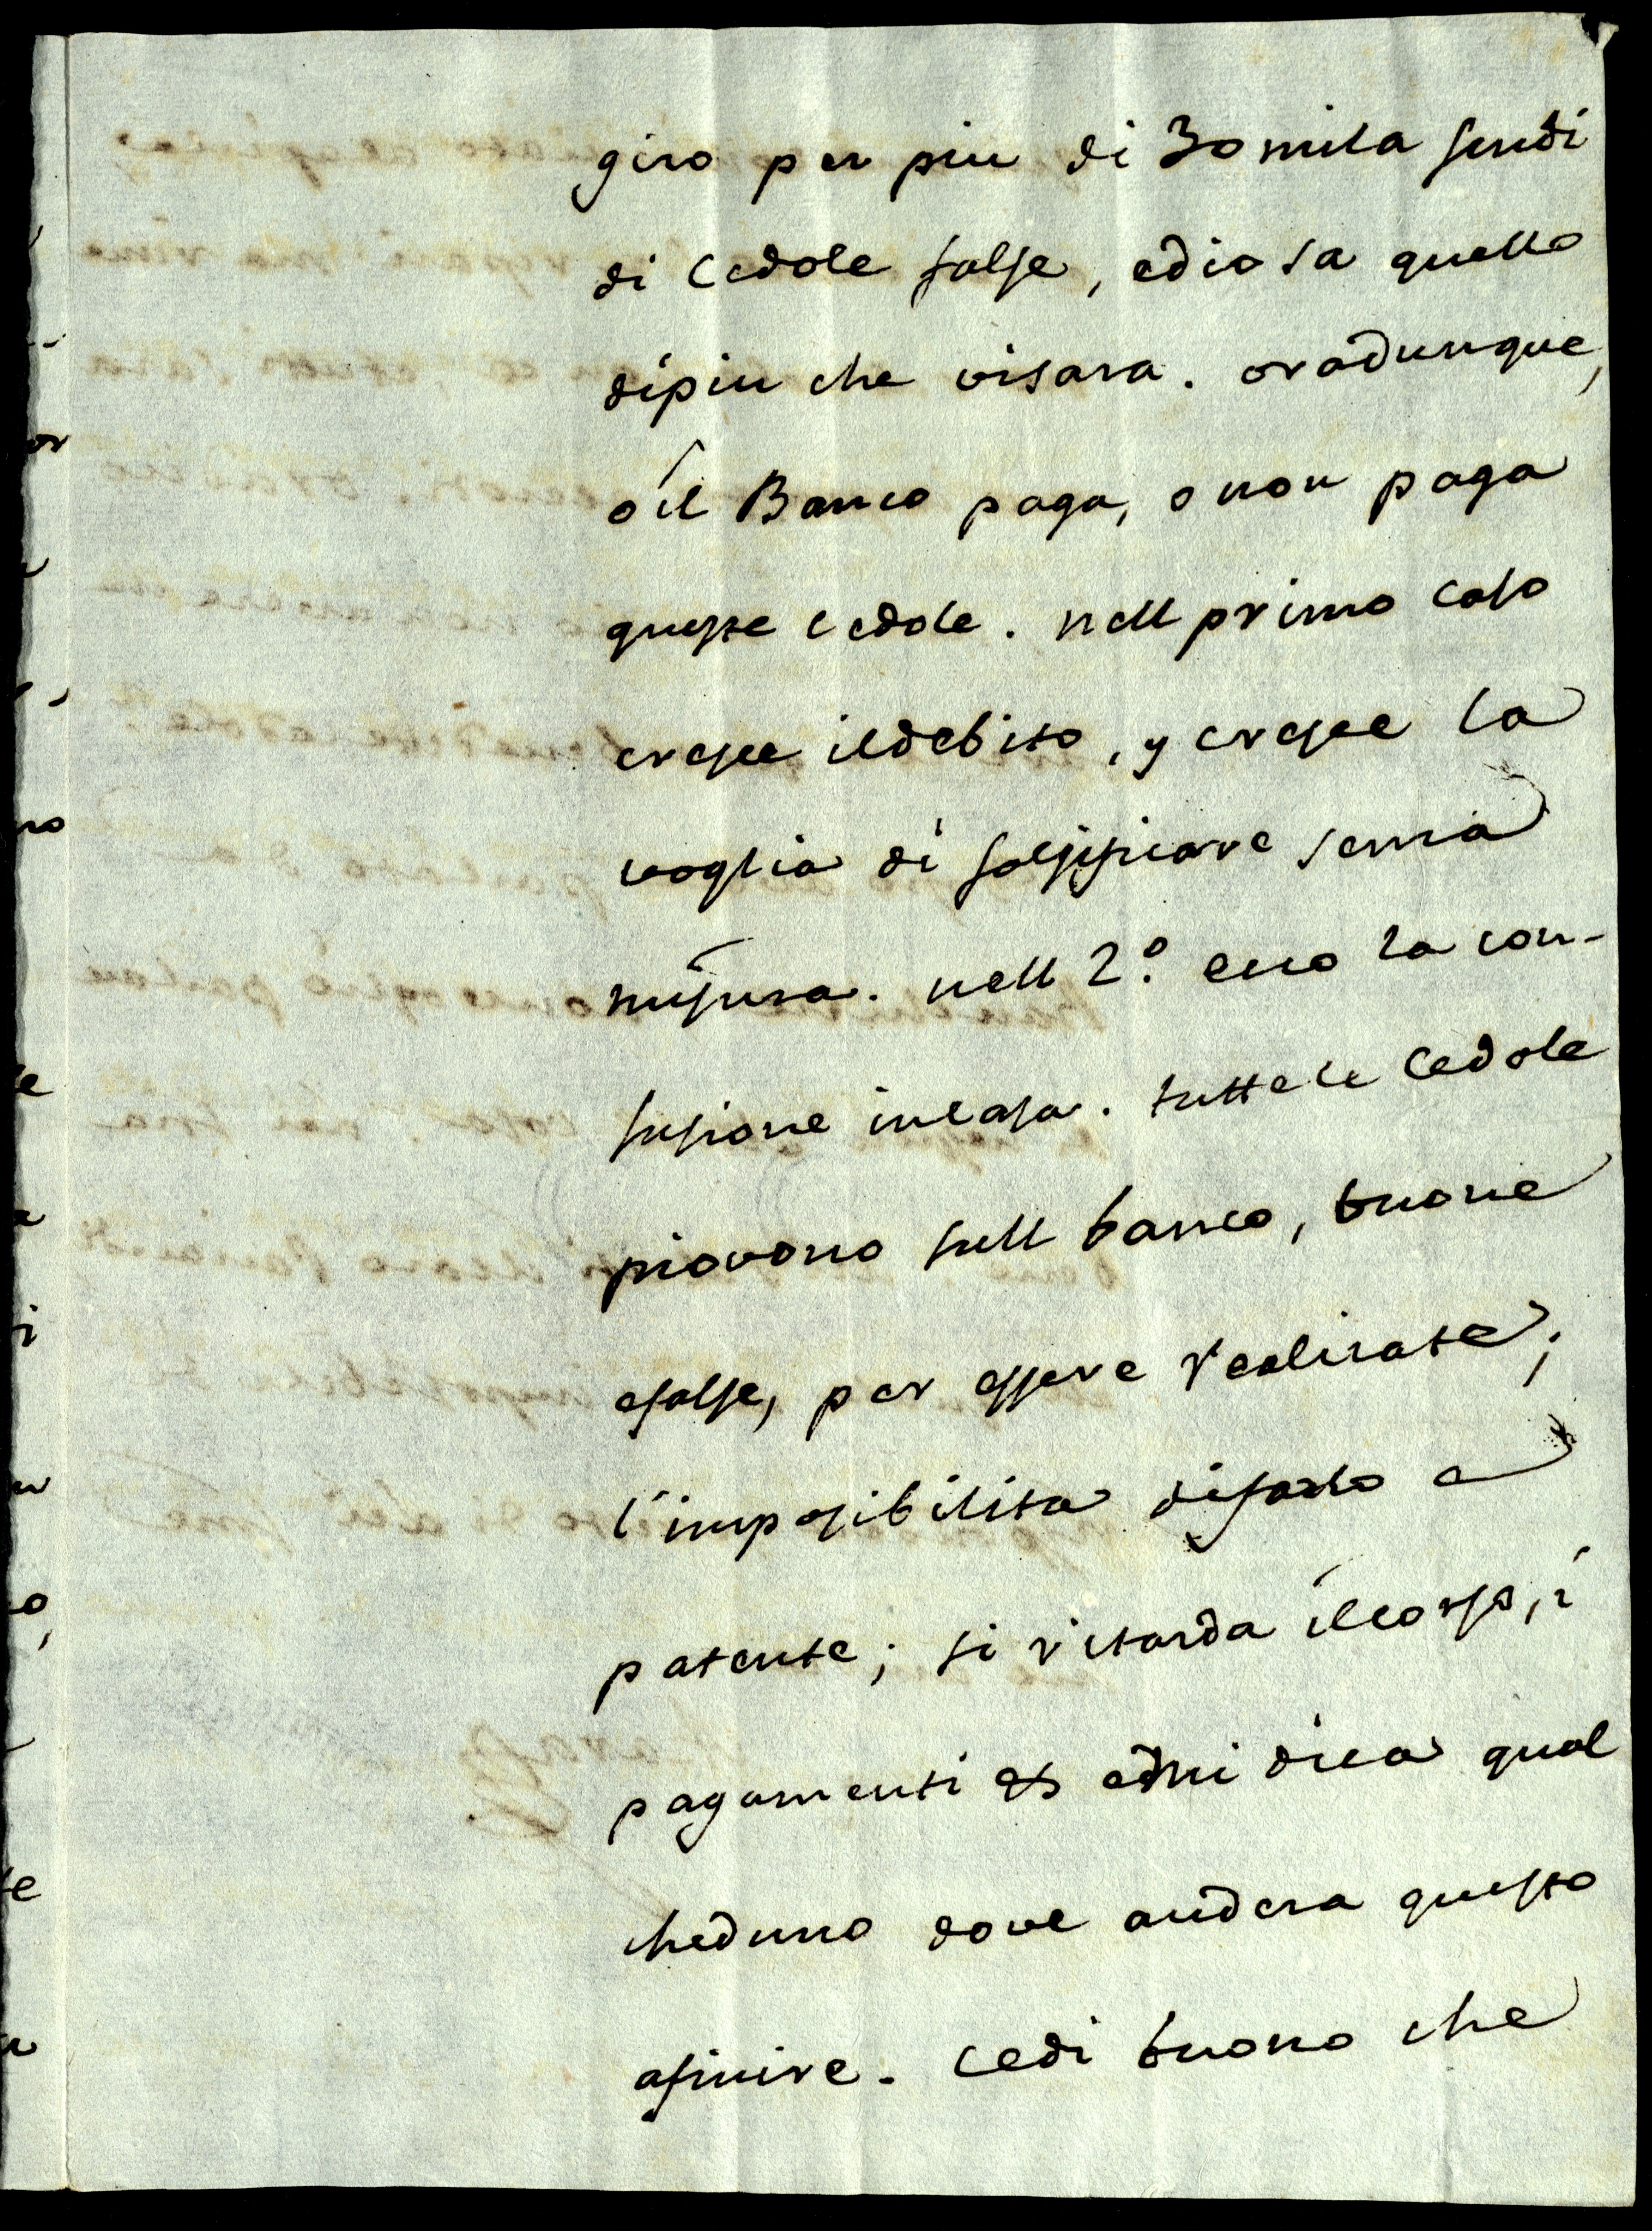 giro per piu di 30 mila scudi
di Cedole false, edio sa quello
dipiu che visara. oradunque,
o il Banco paga, o non paga
queste cedole. nell primo caso
cresce ildebito, y cresce la
voglia di falsificare senza
misura. nell 2.º ecco la con-
fusione incasa. tutte le Cedole
piovono sull banco, buone
efalse, per essere realizate;
l'imposibilita difarlo e
patente; si ritarda ilcorso, i
pagamenti & edmi dica qual
cheduno dove andera questo
afinire. Cedi buono che